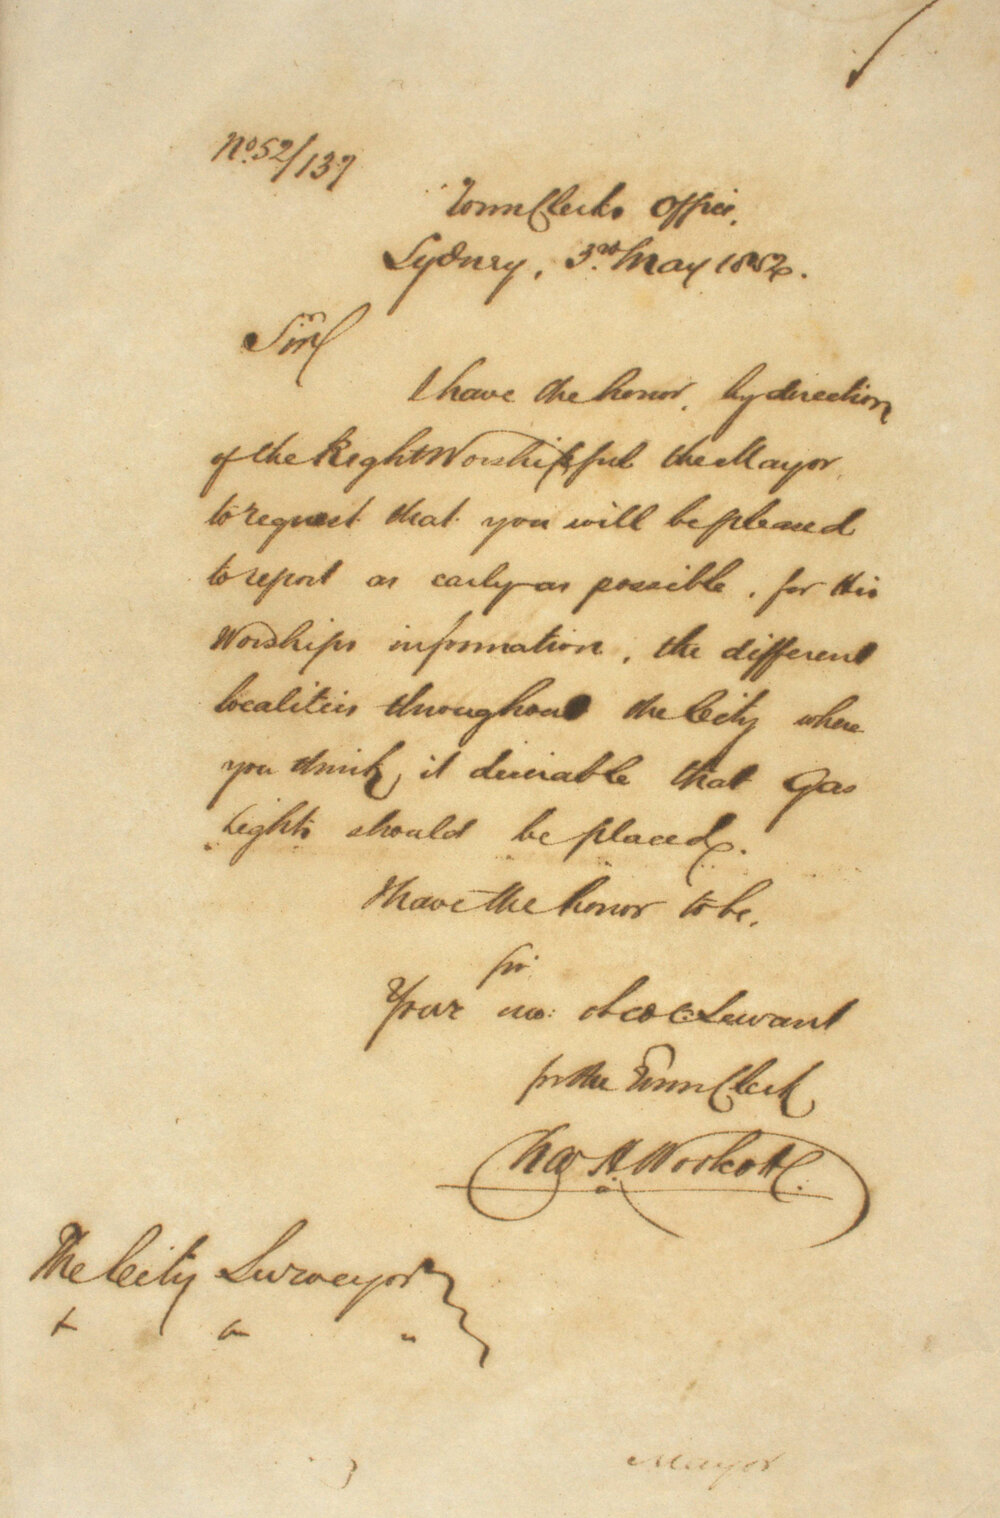 No. 52/137
Town Clerks Office,
Sydney, 3rd May 1852.
Sir
I have the honor, by direction
of the Right Worshipful the Mayor,
to request that you will be pleased
to report as early as possible, for His
Worships information, the different
localities throughout the City where
you think it desirable that Gas
Lights should be placed.
I have the honor to be,
Sir
Your mo: obed Servant
for the Town Clerk
Chas H. Woolcott
The City Surveyor
Mayor